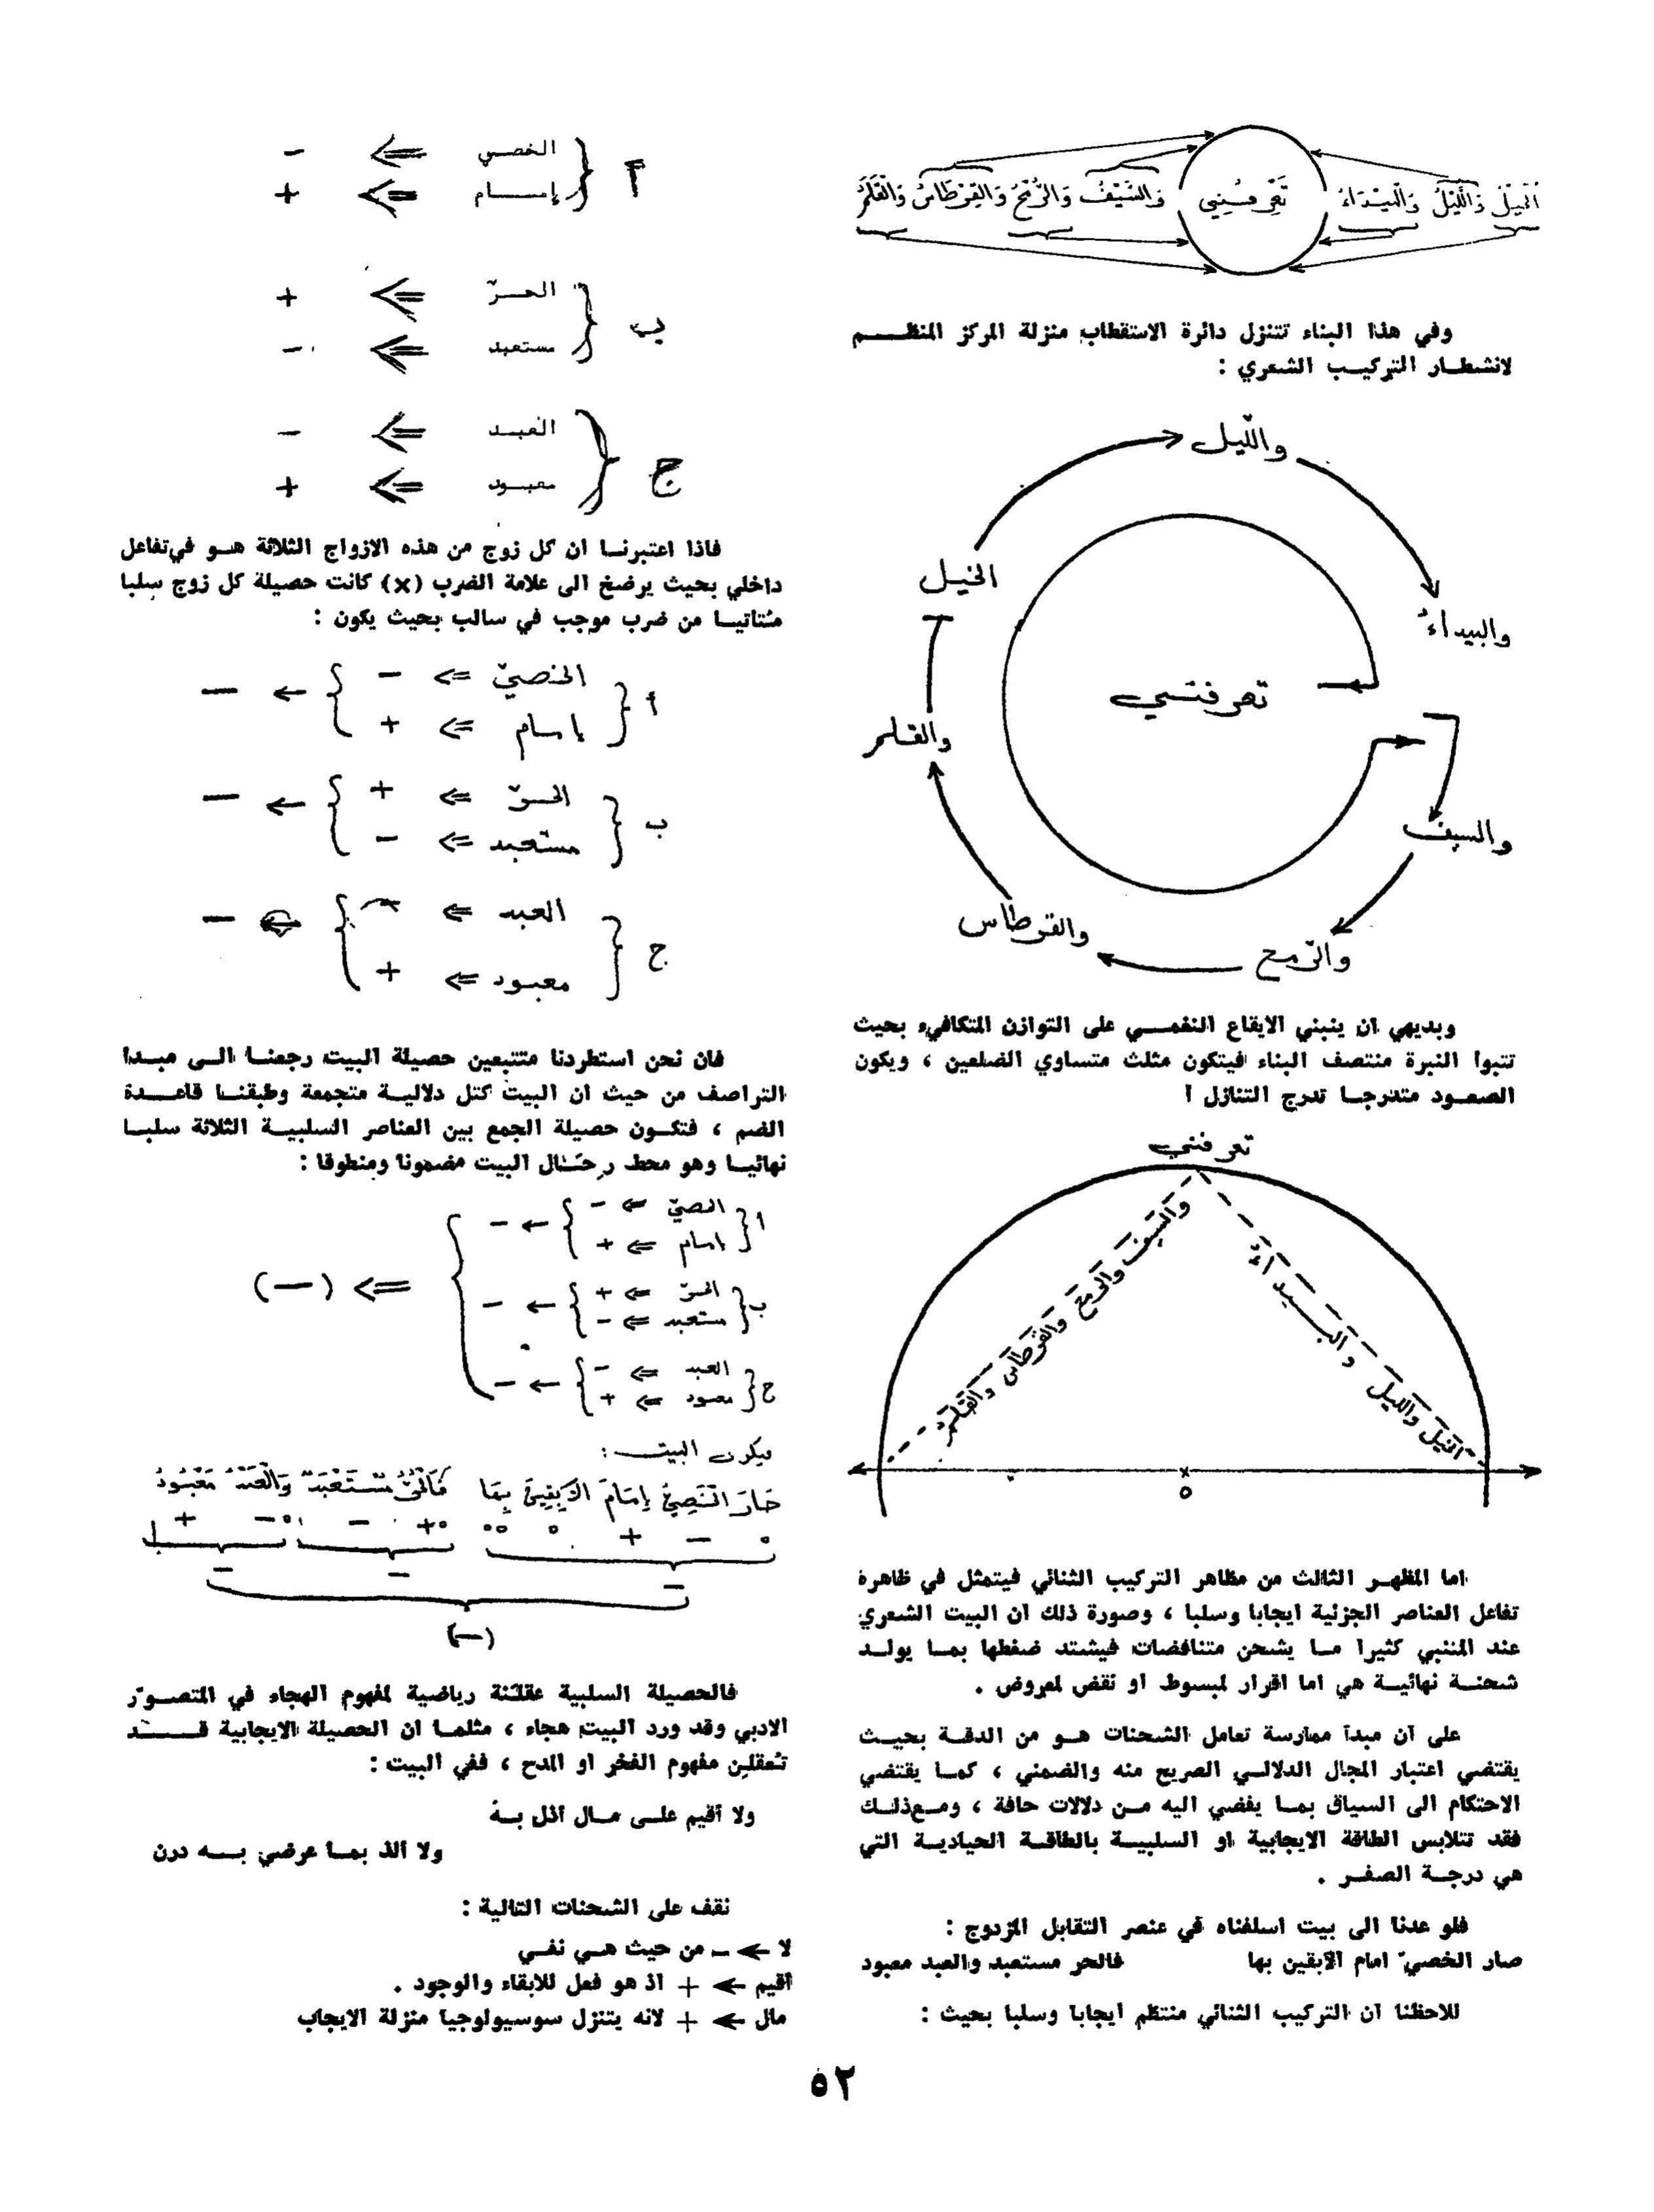 الخيل والليل والبيداء تعرفني والسيف والرمح والقرطاس والقلم
وفي هذا البناء تتنزل دائرة الاستقطاب منزلة المركز المنظم
لانشطار التركيب الشعري :
والليل
الخيل
والبيداء
تعرفنـي
والقلم
والسيف
والقرطاس
والرمح
وبديهي ان ينبني الايقاع النغمي على التوازن المتكافيء بحيث
تتبوا النبرة منتصف البناء فيتكون مثلث متساوي الضلعين ، ويكون
الصعود متدرجا تدرج التنازل !
تعرفني
والسيف والرمح والقرطاس والقلم
الخيل والليل والبيداء
x
٥
اما المظهر الثالث من مظاهر التركيب الثنائي فيتمثل في ظاهرة
تفاعل العناصر الجزئية ايجابا وسلبا ، وصورة ذلك ان البيت الشعري
عند المتنبي كثيرا ما يشحن متناقضات فيشتد ضغطها بما يولد
شحنة نهائية هي اما اقرار لمبسوط او نقض لمعروض .
على ان مبدأ ممارسة تعامل الشحنات هو من الدقة بحيث
يقتضي اعتبار المجال الدلالي الصريح منه والضمني ، كما يقتضي
الاحتكام الى السياق بما يفضي اليه من دلالات حافة ، ومع ذلك
فقد تتلابس الطاقة الايجابية او السلبية بالطاقة الحيادية التي
هي درجة الصفر .
فلو عدنا الى بيت اسلفناه في عنصر التقابل المزدوج :
صار الخصيّ امام الآبقين بها فالحر مستعبد والعبد معبود
للاحظنا ان التركيب الثنائي منتظم ايجابا وسلبا بحيث :
أ { الخصي ⇐ −
إمام ⇐ +
ب { الحرّ ⇐ +
مستعبد ⇐ −
ج { العبد ⇐ −
معبود ⇐ +
فاذا اعتبرنا ان كل زوج من هذه الازواج الثلاثة هو في تفاعل
داخلي بحيث يرضخ الى علامة الضرب (x) كانت حصيلة كل زوج سلبا
متأتيا من ضرب موجب في سالب بحيث يكون :
أ { الخصيّ ⇐ − } ← −
إمام ⇐ +
ب { الحرّ ⇐ + } ← −
مستعبد ⇐ −
ج { العبد ⇐ − } ← −
معبود ⇐ +
فان نحن استطردنا متتبعين حصيلة البيت رجعنا الى مبدا
التراصف من حيث ان البيت كتل دلالية متجمعة وطبقنا قاعدة
الضم ، فتكون حصيلة الجمع بين العناصر السلبية الثلاثة سلبا
نهائيا وهو محط رحال البيت مضمونا ومنطوقا :
أ { الخصيّ ⇐ − } ← −
إمام ⇐ +
ب { الحرّ ⇐ + } ← − ⇐ (−)
مستعبد ⇐ −
ج { العبد ⇐ − } ← −
معبود ⇐ +
ويكون البيت :
صار الخصيّ إمام الآبقين بها فالحرّ مستعبد والعبد معبود
° − + ° °° °+ − °− +
− − −
(−)
فالحصيلة السلبية عقلنة رياضية لمفهوم الهجاء في المتصوّر
الادبي وقد ورد البيت هجاء ، مثلما ان الحصيلة الايجابية قد
تعقلن مفهوم الفخر او المدح ، ففي البيت :
ولا أقيم على مال أذل به
ولا ألذ بما عرضي به درن
نقف على الشحنات التالية :
لا ← − من حيث هي نفي
أقيم ← + اذ هو فعل للابقاء والوجود .
مال ← + لانه يتنزل سوسيولوجيا منزلة الايجاب
٥٢